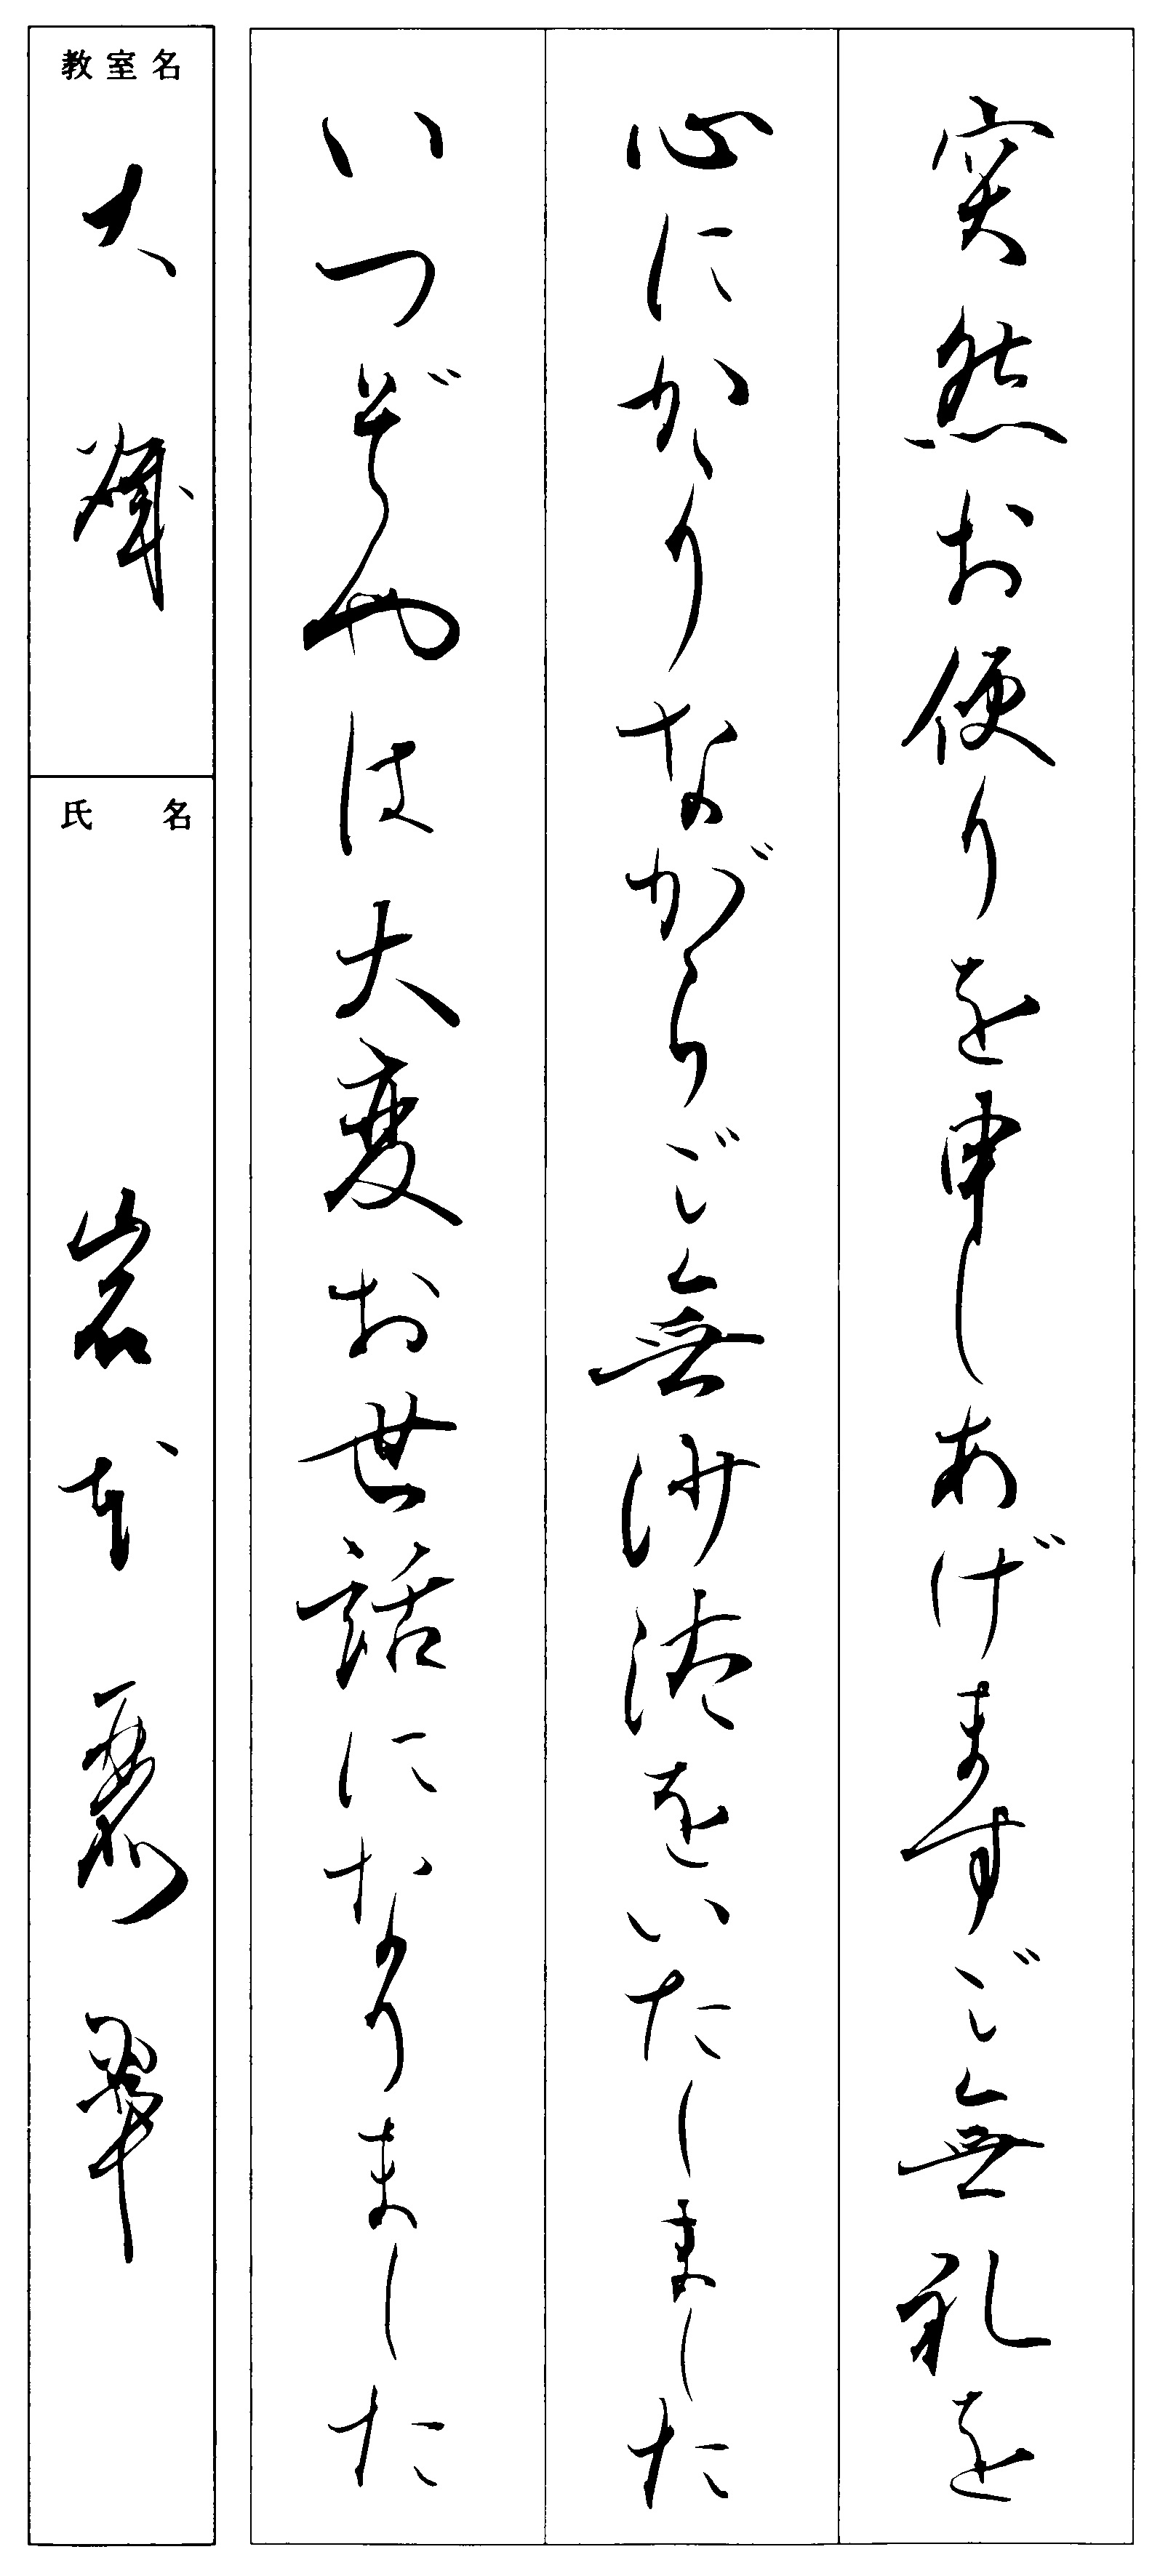 突然お便りを申しあげますご無礼を
心にかゝりながらご無沙汰をいたしました
いつぞやは大変お世話になりました
教室名
大
氏名
岩本
翠